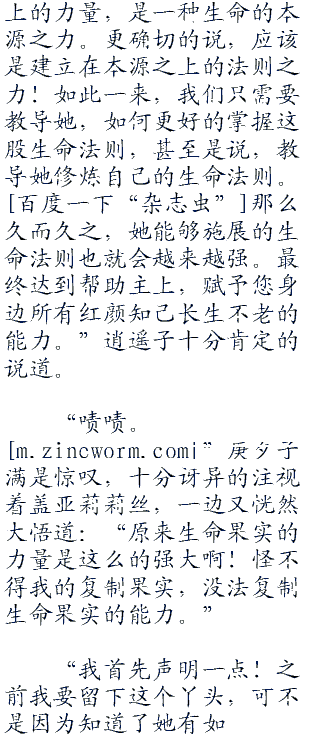 上的力量，是一种生命的本
源之力。更确切的说，应该
是建立在本源之上的法则之
力！如此一来，我们只需要
教导她，如何更好的掌握这
股生命法则，甚至是说，教
导她修炼自己的生命法则。
[百度一下“杂志虫”]那么
久而久之，她能够施展的生
命法则也就会越来越强。最
终达到帮助主上，赋予您身
边所有红颜知己长生不老的
能力。”逍遥子十分肯定的
说道。
“啧啧。
[m.zincworm.com|”庚夕子
满是惊叹，十分讶异的注视
着盖亚莉莉丝，一边又恍然
大悟道：“原来生命果实的
力量是这么的强大啊！怪不
得我的复制果实，没法复制
生命果实的能力。”
“我首先声明一点！之
前我要留下这个丫头，可不
是因为知道了她有如